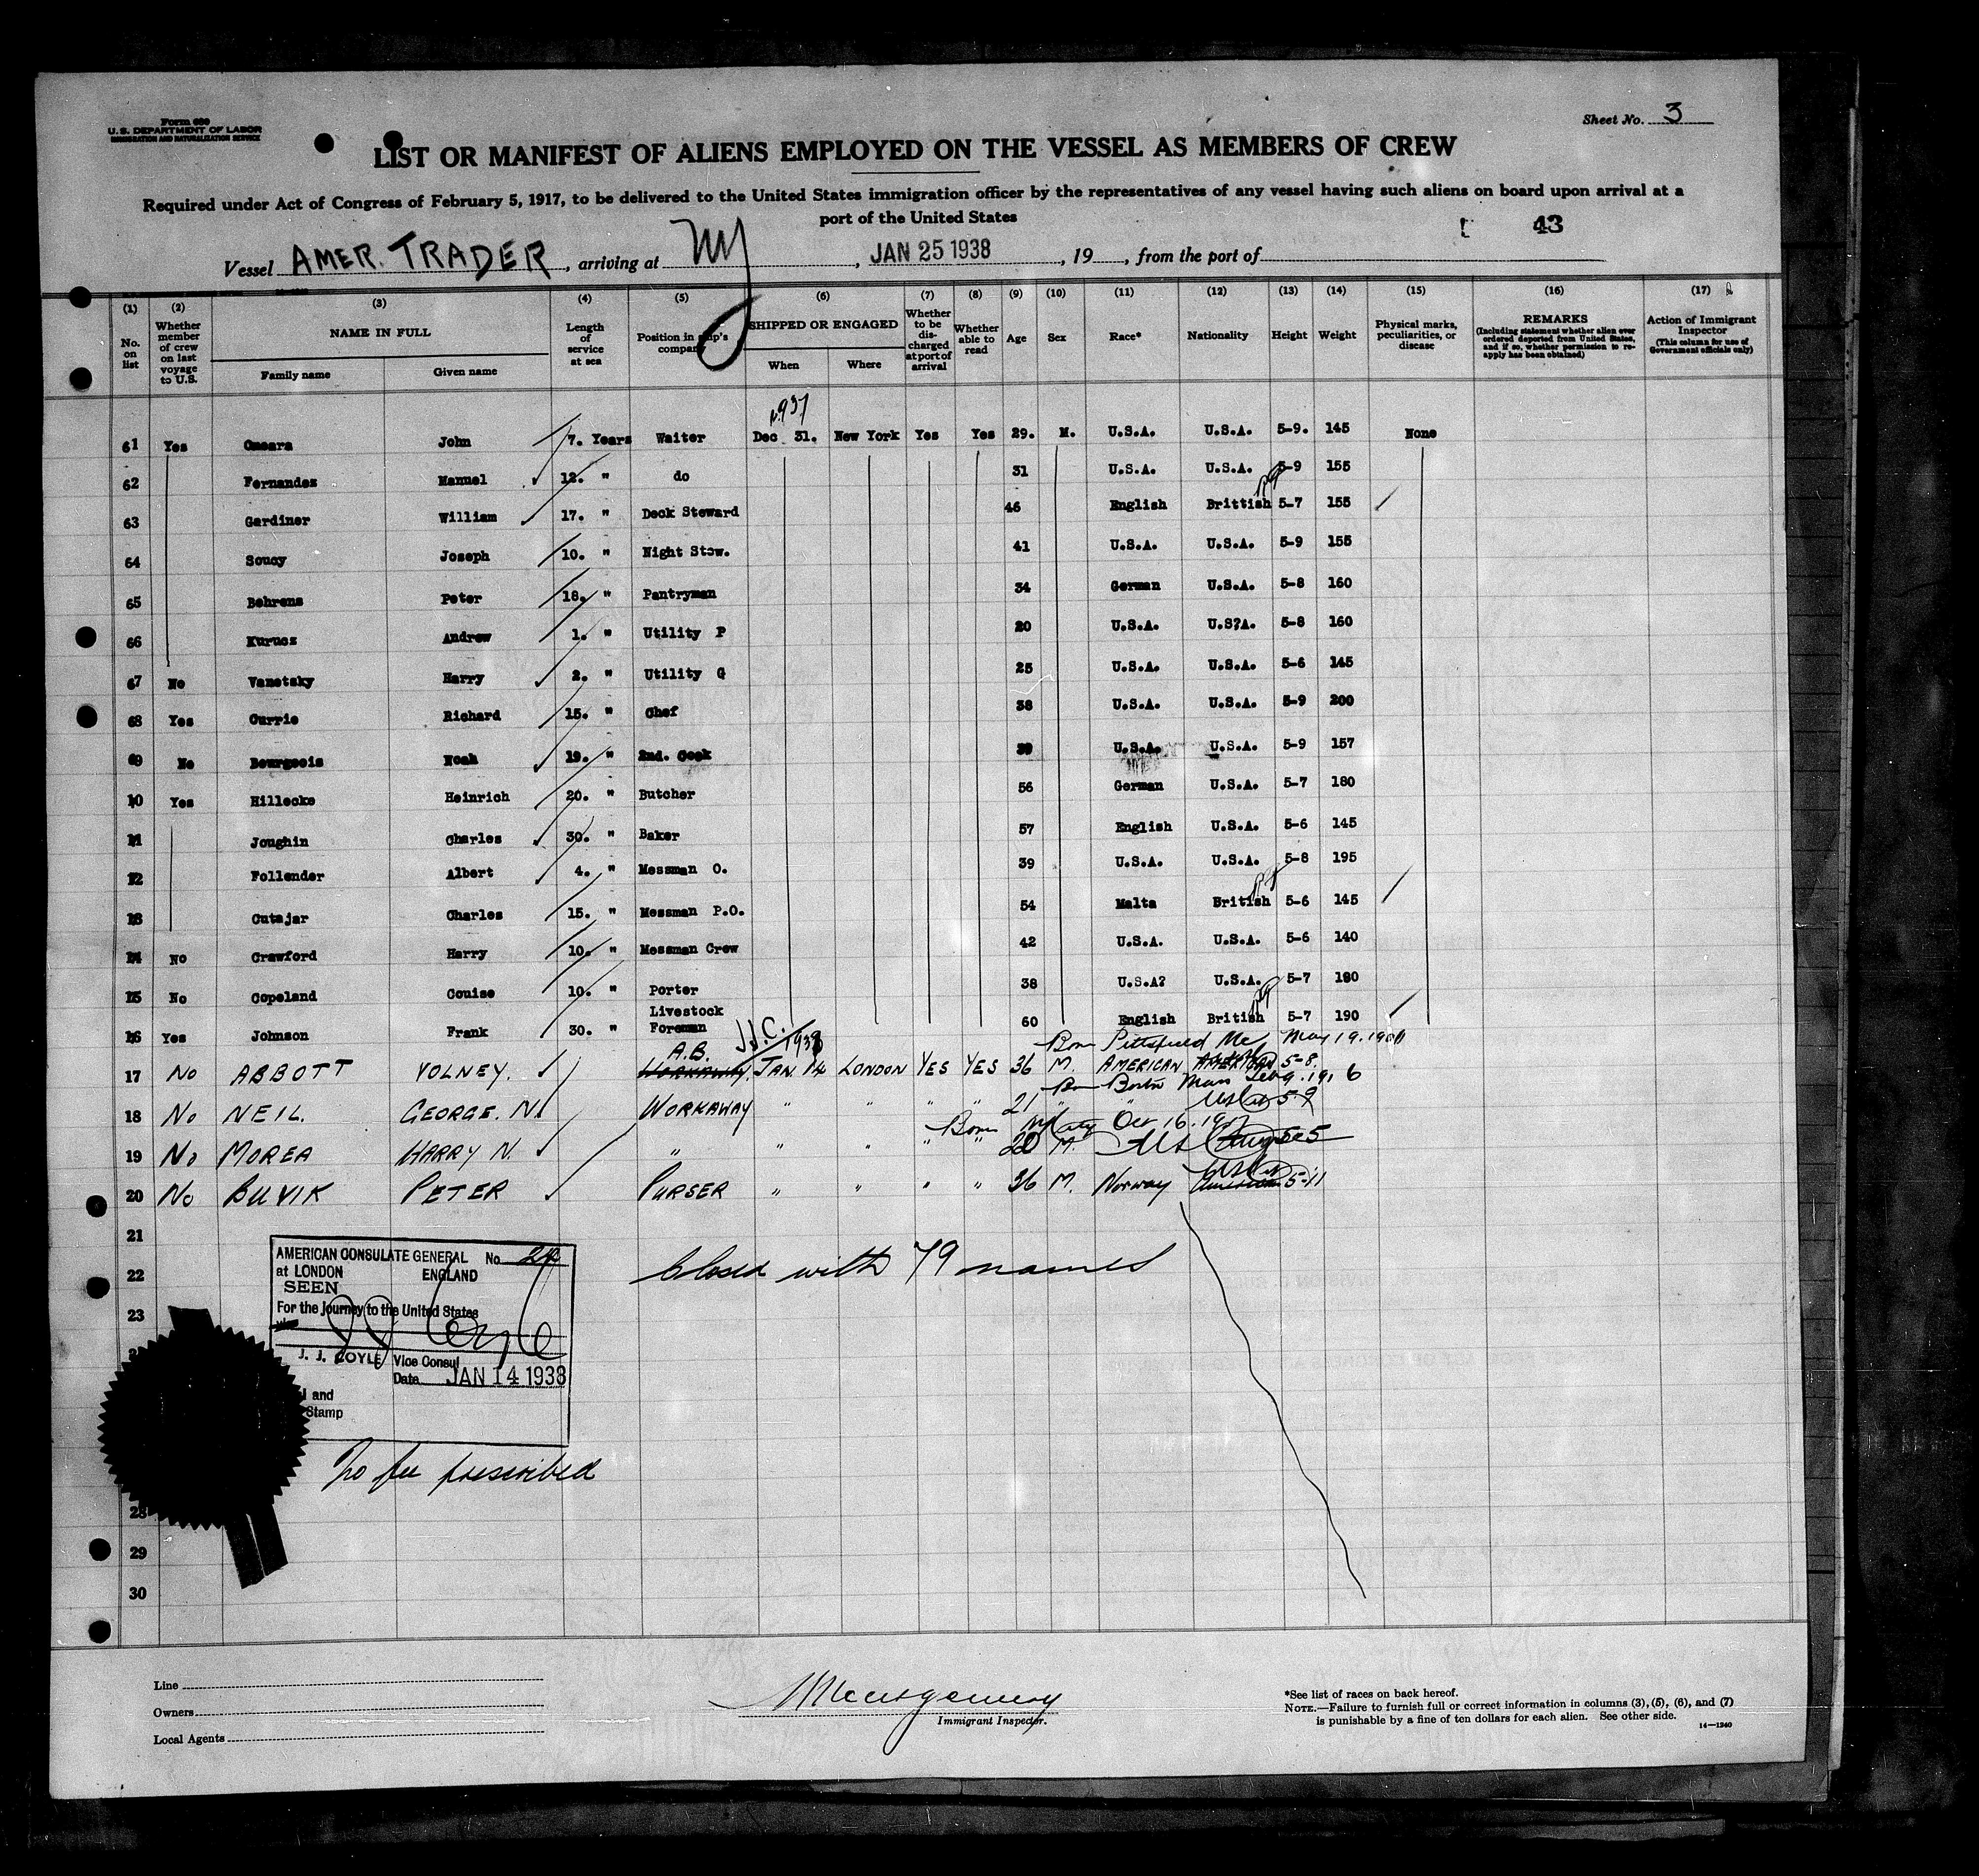 Form 680
U. S. DEPARTMENT OF LABOR
IMMIGRATION AND NATURALIZATION SERVICE
Sheet No. 3
LIST OR MANIFEST OF ALIENS EMPLOYED ON THE VESSEL AS MEMBERS OF CREW
Required under Act of Congress of February 5, 1917, to be delivered to the United States immigration officer by the representatives of any vessel having such aliens on board upon arrival at a
port of the United States
43
Vessel AMER. TRADER, arriving at NY, JAN 25 1938, 19, from the port of
(1) (2) (3) (4) (5) (6) (7) (8) (9) (10) (11) (12) (13) (14) (15) (16) (17)
No. on list Whether member of crew on last voyage to U.S. NAME IN FULL Family name Given name Length of service at sea Position in ship's company SHIPPED OR ENGAGED When Where Whether to be discharged at port of arrival Whether able to read Age Sex Race* Nationality Height Weight Physical marks, peculiarities, or disease REMARKS (Including statement whether alien ever ordered deported from United States, and if so, whether permission to reapply has been obtained) Action of Immigrant Inspector (This column for use of Government officials only)
1937
61 Yes Omeara John 7. Years Waiter Dec 31. New York Yes Yes 29. M. U.S.A. U.S.A. 5-9. 145 None
62 Fernandez Manuel 12. " do 31 U.S.A. U.S.A. 5-9 155
63 Gardiner William 17. " Deck Steward 46 English Brittish 5-7 155
64 Soucy Joseph 10. " Night Stew. 41 U.S.A. U.S.A. 5-9 155
65 Behrens Peter 18. " Pantryman 34 German U.S.A. 5-8 160
66 Kurucz Andrew 1. " Utility P 20 U.S.A. U.S?A. 5-8 160
67 No Vanetsky Harry 2. " Utility G 25 U.S.A. U.S.A. 5-6 145
68 Yes Currie Richard 15. " Chef 38 U.S.A. U.S.A. 5-9 200
69 No Bourgeois Noah 19. " 2nd. Cook 39 U.S.A. U.S.A. 5-9 157
10 Yes Hillecke Heinrich 20. " Butcher 56 German U.S.A. 5-7 180
11 Joughin Charles 30. " Baker 57 English U.S.A. 5-6 145
12 Follender Albert 4. " Messman O. 39 U.S.A. U.S.A. 5-8 195
13 Cutajar Charles 15. " Messman P.O. 54 Malta British 5-6 145
14 No Crawford Harry 10. " Messman Crew 42 U.S.A. U.S.A. 5-6 140
15 No Copeland Couise 10. " Porter 38 U.S.A? U.S.A. 5-7 180
16 Yes Johnson Frank 30. " Livestock Foreman 60 English British 5-7 190
J.J.C. 1938 Born Pittsfield Me, May 19.1901
17 No ABBOTT VOLNEY. A.B. WORKAWAY JAN 14 LONDON YES YES 36 M. AMERICAN AMERICAN 5-8.
Born Boston Mass Feb 9.1916
18 No NEIL. GEORGE. N. WORKAWAY " " " " 21 " " USA 5-9
Born NY City Oct 16.1917
19 No MOREA HARRY N. " " " " " 20 M. US 5-5
20 No BUVIK PETER PURSER " " " " 36 M. Norway American 5-11
21
22 Closed with 79 names
23
28
29
30
AMERICAN CONSULATE GENERAL No. 24
at LONDON ENGLAND
SEEN
For the Journey to the United States
JJ Coyle
J. J. COYLE Vice Consul
Date JAN 14 1938
and
Stamp
No fee prescribed
Line
Owners
Local Agents
Montgomery
Immigrant Inspector.
*See list of races on back hereof.
NOTE.—Failure to furnish full or correct information in columns (3), (5), (6), and (7)
is punishable by a fine of ten dollars for each alien. See other side.
14—1240